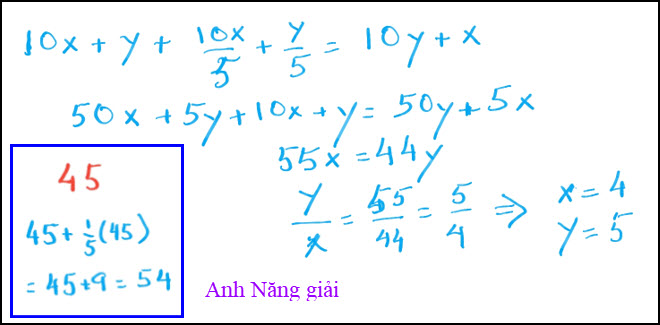 10x + y + 10x/5 + y/5 = 10y + x
50x + 5y + 10x + y = 50y + 5x
55x = 44y
y/x = 55/44 = 5/4 ⇒ x = 4
y = 5
45
45 + 1/5 (45)
= 45 + 9 = 54
Anh Năng giải